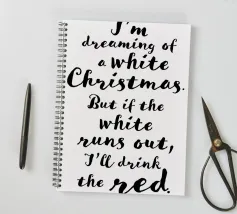 I'm
dreaming of
a white
Christmas.
But if the
white
runs out,
I'll drink
the red.